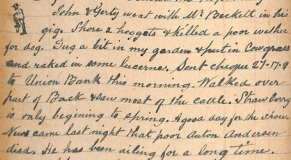 John & Gerty went with Mr Beckett in his
gig. Shore 2 hoggets & killed a poor wether
for dog. Dug a bit in my garden & put in Cow grass
and raked in some lucerne. Sent cheque £7-17-9
to Union Bank this morning. Walked over
part of Back & saw most of the cattle. Strawberry
is only begining to spring. A good day for the show.
News came last night that poor Anton Andersen
died. He has been ailing for a long time.